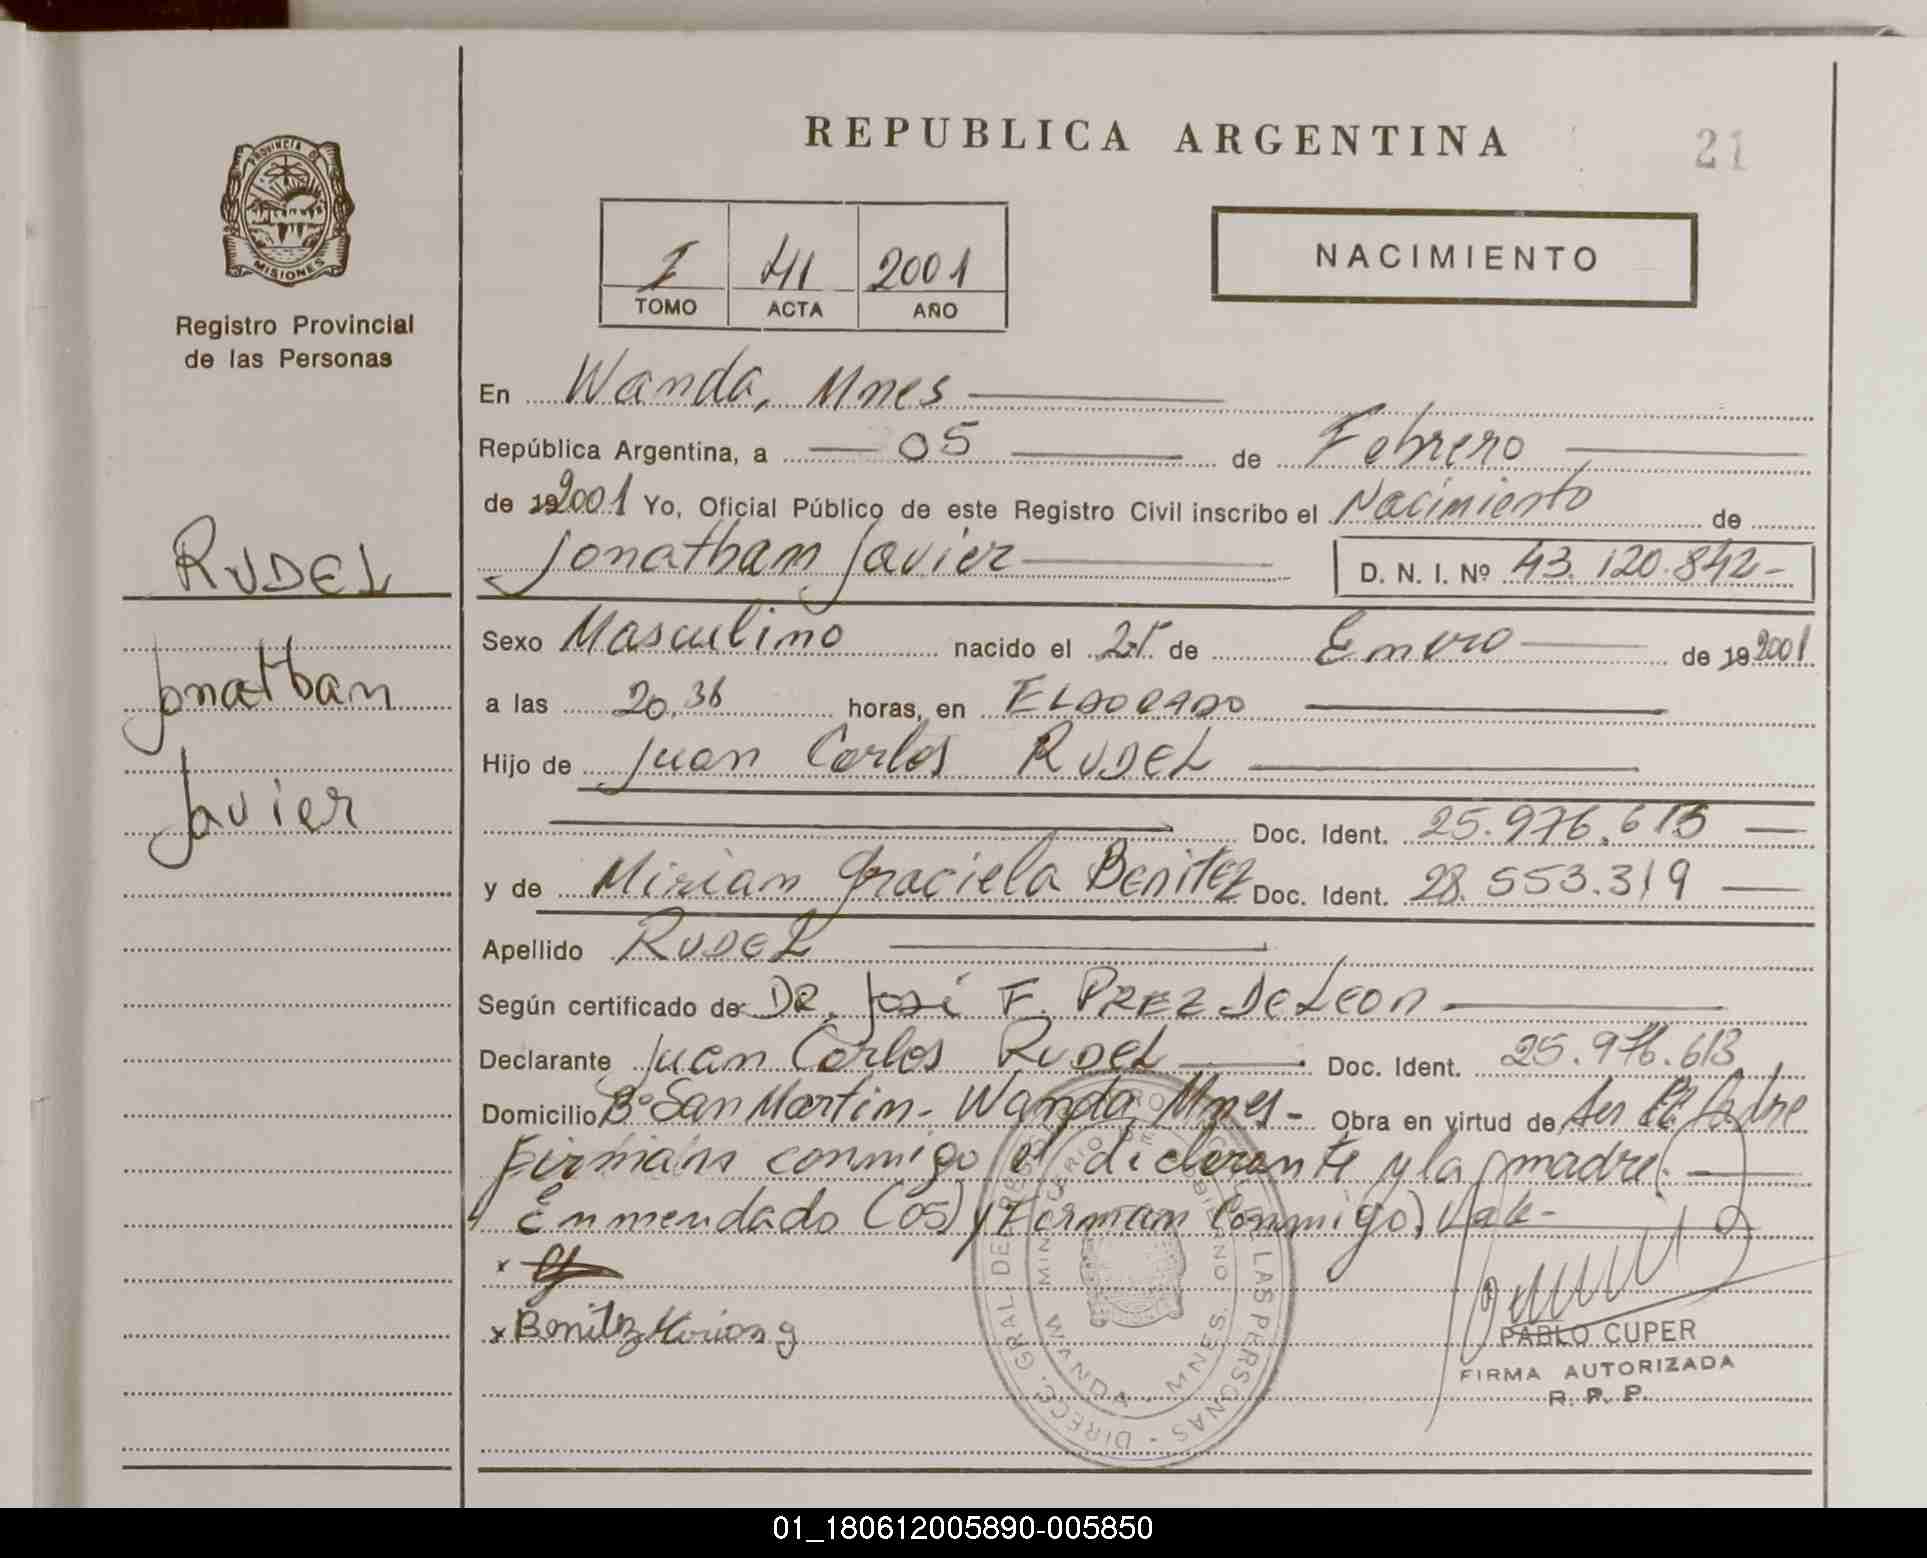 REPUBLICA ARGENTINA
21
PROVINCIA DE
MISIONES
Registro Provincial
de las Personas
I 41 2001
TOMO ACTA AÑO
NACIMIENTO
En Wanda, Mnes
República Argentina, a 05 de Febrero
de 192001 Yo, Oficial Público de este Registro Civil inscribo el Nacimiento de
Jonathan Javier D. N. I. Nº 43.120.842-
RUDEL
Jonathan
Javier
Sexo Masculino nacido el 25 de Enero de 19 2001
a las 20,36 horas, en ELDORADO
Hijo de Juan Carlos RUDEL
Doc. Ident. 25.976.613
y de Mirian Graciela Benitez Doc. Ident. 28.553.319
Apellido RUDEL
Según certificado de DR. José F. PREZ DeLEON
Declarante Juan Carlos RUDEL Doc. Ident. 25.976.613
Domicilio Bº San Martin - Wanda, Mnes - Obra en virtud de Ser El Padre
Firmans conmigo el declarante y la madre.
Enmendado (05) y Firman Conmigo). Vale-
x
x Benitez Mirian g
PABLO CUPER
FIRMA AUTORIZADA
R. P. P.
DIRECC. GRAL. DE REGISTRO PROV. DE LAS PERSONAS
MINISTERIO DE GOBIERNO
WANDA - MNES.
01_180612005890-005850